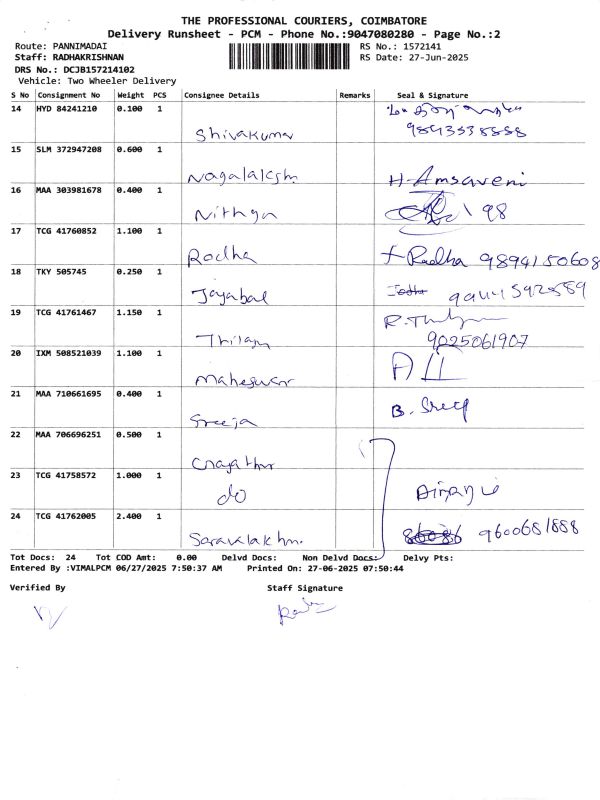 THE PROFESSIONAL COURIERS, COIMBATORE
Delivery Runsheet - PCM - Phone No.:9047080280 - Page No.:2
Route: PANNIMADAI
RS No.: 1572141
Staff: RADHAKRISHNAN
RS Date: 27-Jun-2025
DRS No.: DCJB157214102
Vehicle: Two Wheeler Delivery
S No Consignment No Weight PCS Consignee Details Remarks Seal & Signature
14 HYD 84241210 0.100 1
Shivakumar
15 SLM 372947208 0.600 1
Nagalakshm H-Amsaveni
16 MAA 303981678 0.400 1
Nithya 98
17 TCG 41760852 1.100 1
Radha Radha 9894150608
18 TKY 505745 0.250 1
Jayabal
19 TCG 41761467 1.150 1
9025061907
20 IXM 508521039 1.100 1
Maheswar
21 MAA 710661695 0.400 1
Sreeja B. Sreej
22 MAA 706696251 0.500 1
23 TCG 41758572 1.000 1
do
24 TCG 41762005 2.400 1
9600681888
Tot Docs: 24 Tot COD Amt: 0.00 Delvd Docs: Non Delvd Docs: Delvy Pts:
Entered By :VIMALPCM 06/27/2025 7:50:37 AM Printed On: 27-06-2025 07:50:44
Verified By Staff Signature